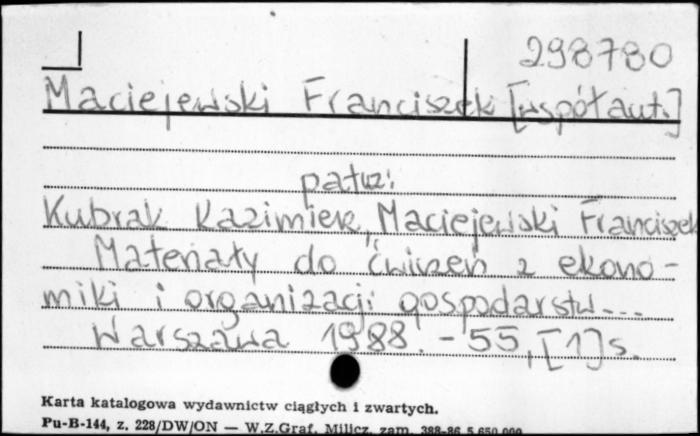 298780
Maciejewski Franciszek [współaut.]
patrz:
Kubrak Kazimierz, Maciejewski Franciszek
Materiały do ćwiczeń z ekono-
miki i organizacji gospodarstw...
Warszawa 1988. - 55, [1] s.
Karta katalogowa wydawnictw ciągłych i zwartych.
Pu-B-144, z. 228/DW/ON — W.Z.Graf. Milicz, zam. 388-86 5.650.000